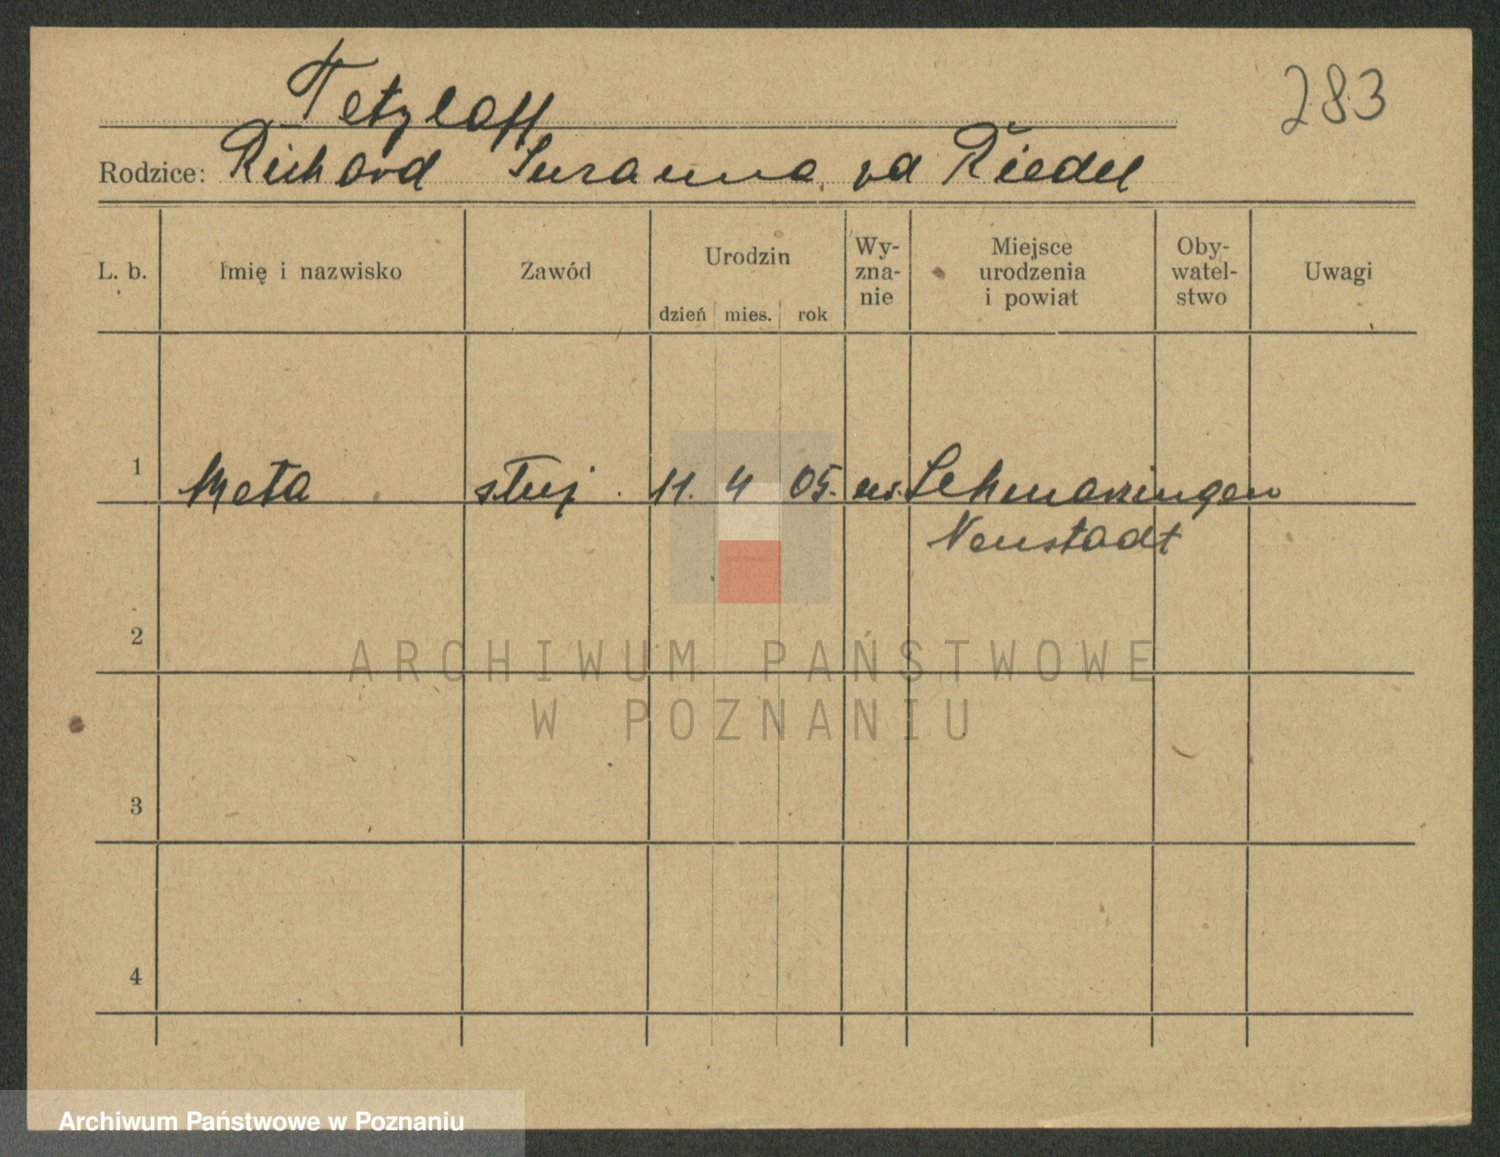 283
Tetzlaff
Rodzice: Richard Suzanna zd Riedel
L. b. Imię i nazwisko Zawód Urodzin dzień mies. rok Wy-zna-nie Miejsce urodzenia i powiat Oby-watel-stwo Uwagi
1 Meta służ. 11. 4 05. ew.
Neustadt
2
ARCHIWUM PAŃSTWOWE
W POZNANIU
3
4
Archiwum Państwowe w Poznaniu